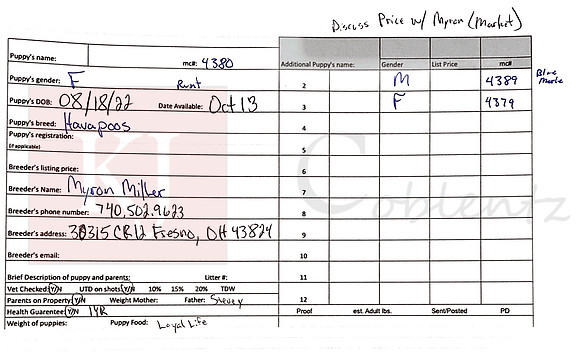 Discuss Price w/ Myron (Market)
Puppy's name: mc#: 4380 Additional Puppy's name: Gender List Price mc#
Puppy's gender: F Runt 2 M 4389 Blue Merle
Puppy's DOB: 08/18/22 Date Available: Oct 13 3 F 4379
Puppy's breed: Havapoos 4
Puppy's registration: 5
(if applicable)
Breeder's listing price: 6
Breeder's Name: Myron Miller 7
Breeder's phone number: 740.502.9623 8
Breeder's address: 30315 CR12 Fresno, OH 43824 9
Breeder's email: 10
Brief Description of puppy and parents: Litter #: 11
Vet Checked: Y/N UTD on shots: Y/N 10% 15% 20% TDW
Parents on Property: Y/N Weight Mother: Father: 12
Health Guarentee: Y/N 1YR Proof est. Adult lbs. Sent/Posted PD
Weight of puppies: Puppy Food: Loyal Life
Coblentz